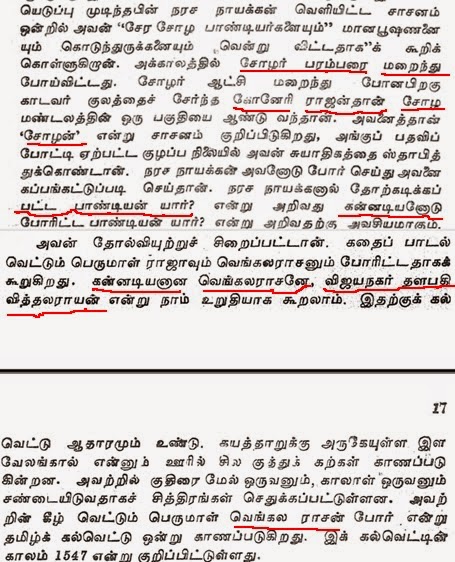 யெடுப்பு முடிந்தபின் நரச நாயக்கன் வெளியிட்ட சாசனம்
ஒன்றில் அவன் “சேர சோழ பாண்டியர்களையும்” மானபூஷணனை
யும் கொடுந்துருக்கனையும் வென்று விட்டதாக”க் கூறிக்
கொள்ளுகிறான். அக்காலத்தில் சோழர் பரம்பரை மறைந்து
போய்விட்டது. சோழர் ஆட்சி மறைந்து போனபிறகு
காடவர் குலத்தைச் சேர்ந்த கோனேரி ராஜன்தான் சோழ
மண்டலத்தின் ஒரு பகுதியை ஆண்டு வந்தான். அவனைத்தான்
‘சோழன்’ என்று சாசனம் குறிப்பிடுகிறது, அங்குப் பதவிப்
போட்டி ஏற்பட்ட குழப்ப நிலையில் அவன் சுயாதிகத்தை ஸ்தாபித்
துக்கொண்டான். நரச நாயக்கன் அவனோடு போர் செய்து அவனை
கப்பங்கட்டுப்படி செய்தான். நரச நாயக்கனால் தோற்கடிக்கப்
பட்ட பாண்டியன் யார்? என்று அறிவது கன்னடியனோடு
போரிட்ட பாண்டியன் யார்? என்று அறிவதற்கு அவசியமாகும்.
அவன் தோல்வியுற்றுச் சிறைப்பட்டான். கதைப் பாடல்
வெட்டும் பெருமாள் ராஜாவும் வெங்கலராசனும் போரிட்டதாகக்
கூறுகிறது. கன்னடியனான வெங்கலராசனே, விஜயநகர் தளபதி
வித்தலராயன் என்று நாம் உறுதியாக கூறலாம். இதற்குக் கல்
17
வெட்டு ஆதாரமும் உண்டு. கயத்தாறுக்கு அருகேயுள்ள இள
வேலங்கால் என்னும் ஊரில் சில குத்துக் கற்கள் காணப்படு
கின்றன. அவற்றில் குதிரை மேல் ஒருவனும், காலாள் ஒருவனும்
சண்டையிடுவதாகச் சித்திரங்கள் செதுக்கப்பட்டுள்ளன. அவற்
றின் கீழ் வெட்டும் பெருமாள் வெங்கல ராசன் போர் என்று
தமிழ்க் கல்வெட்டு ஒன்று காணப்படுகிறது. இக் கல்வெட்டின்
காலம் 1547 என்று குறிப்பிட்டுள்ளது.